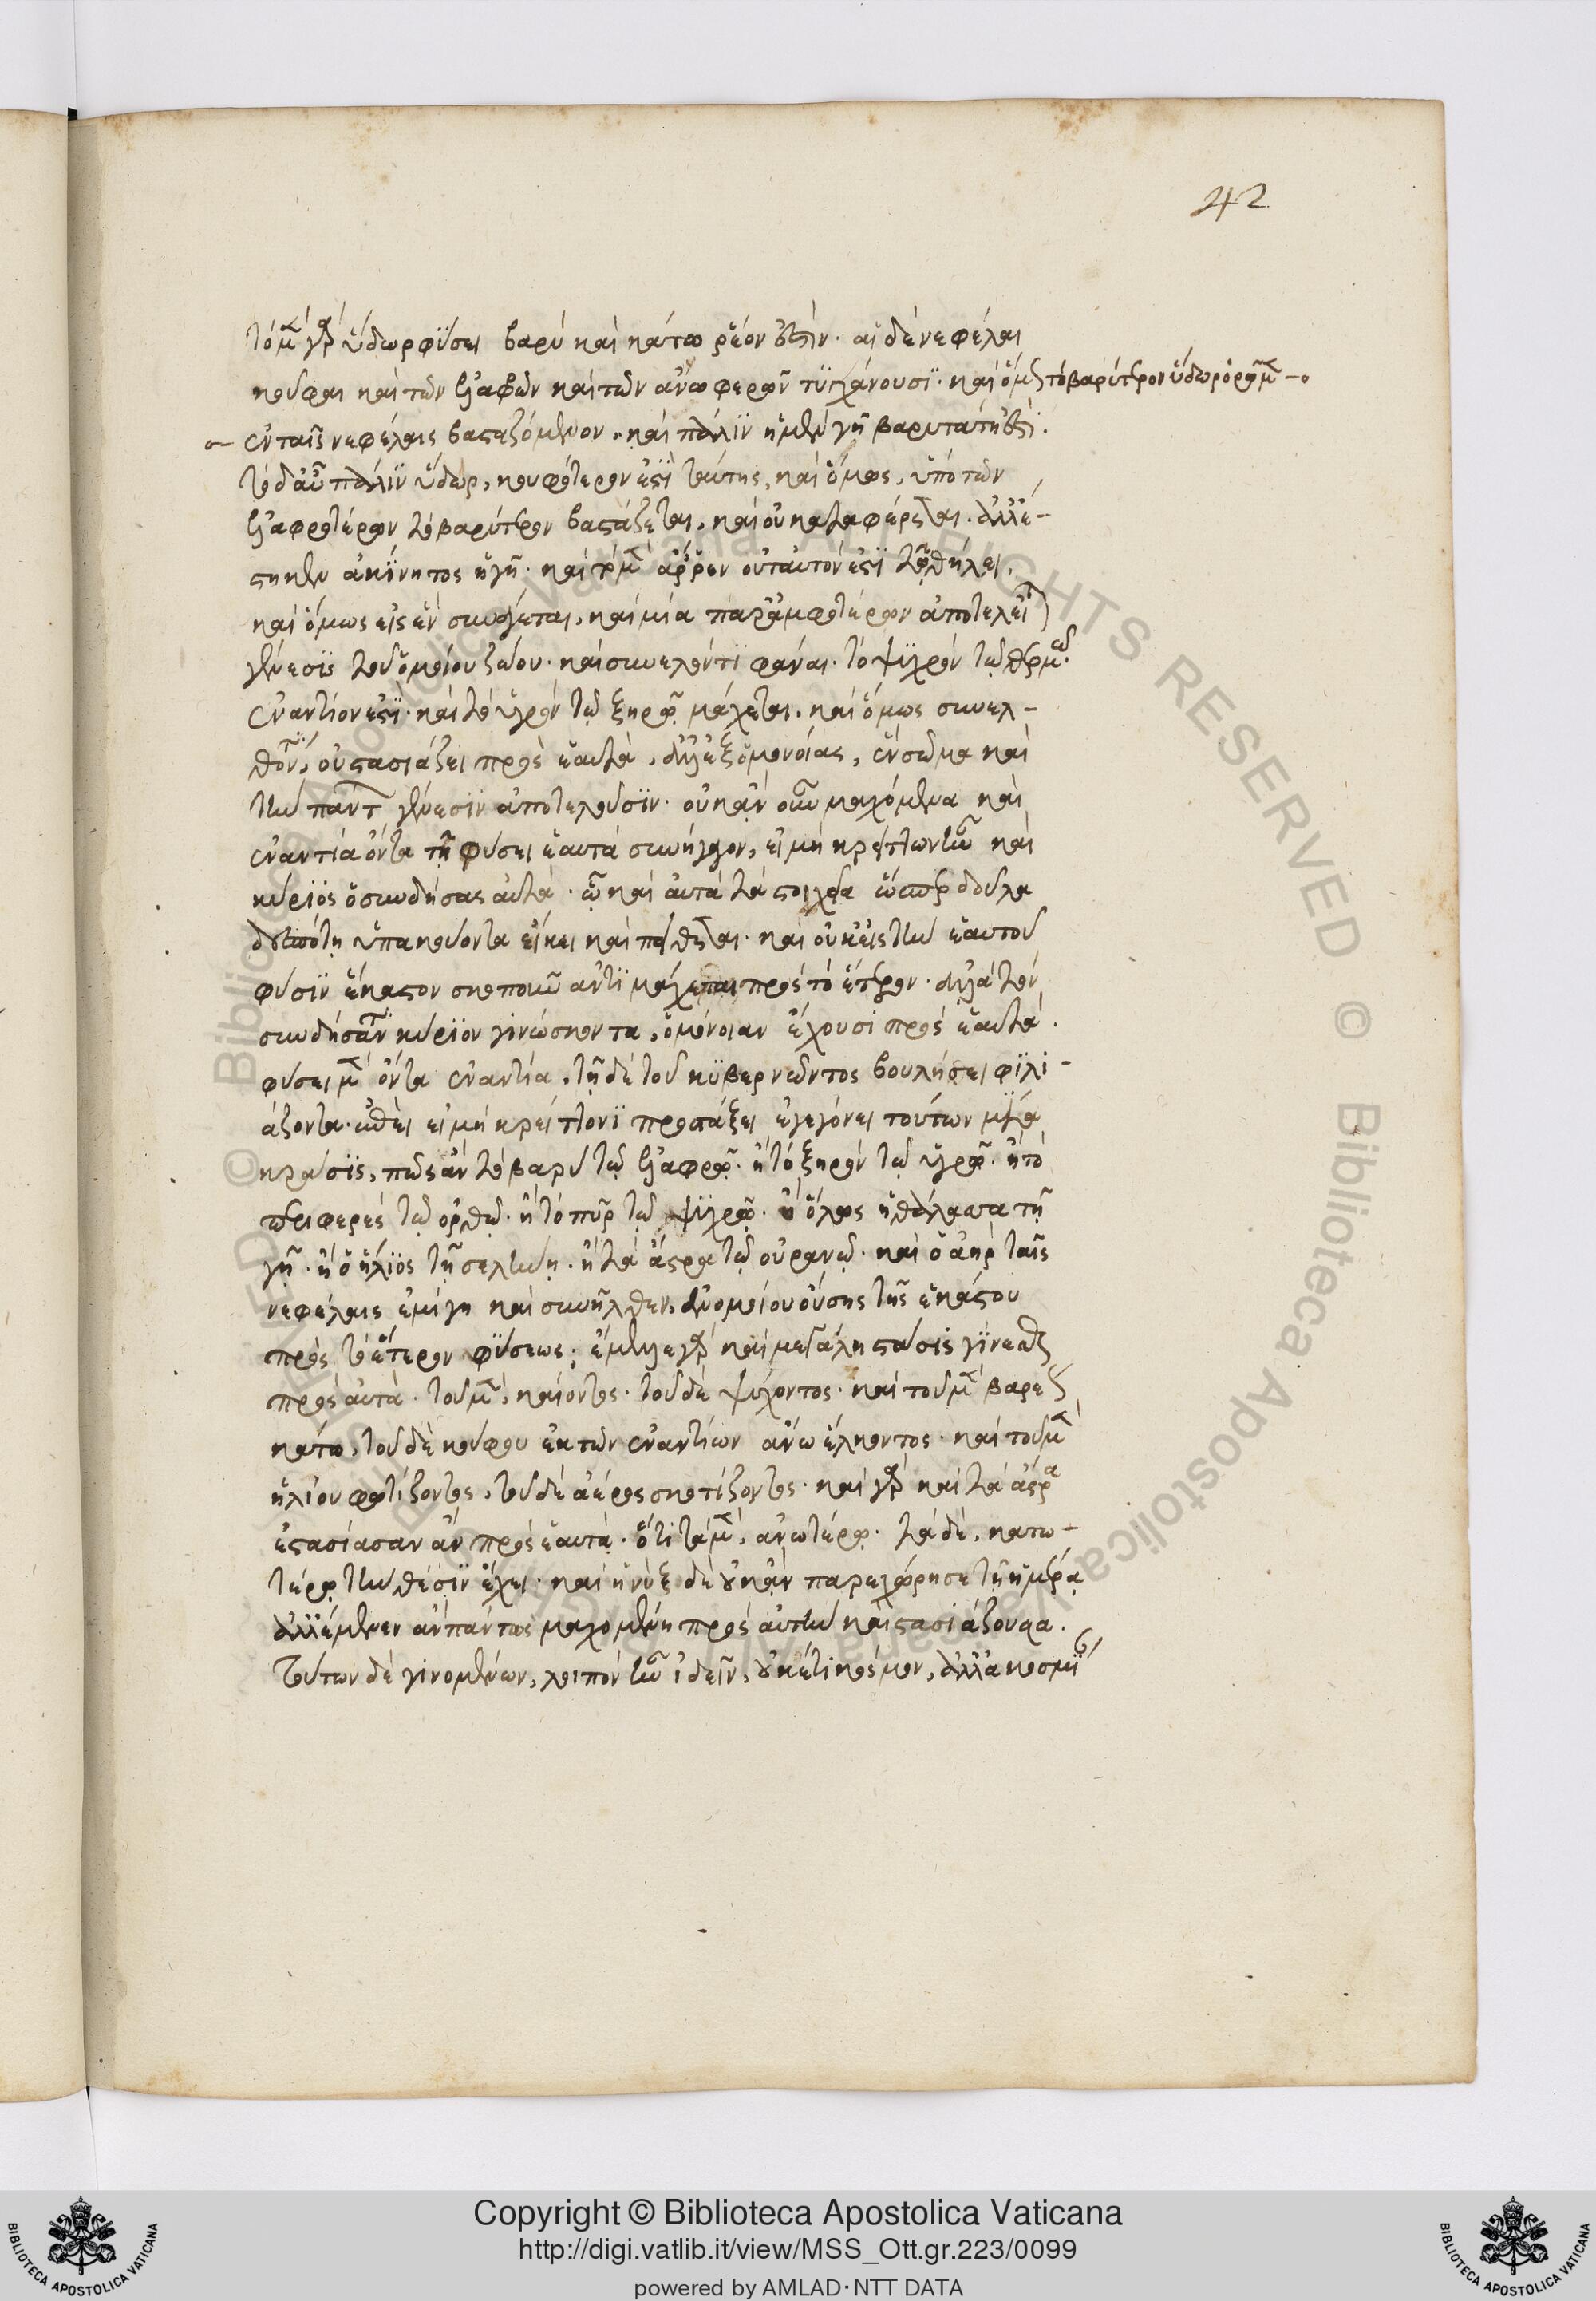 42
τὸ μὲν γὰρ ὕδωρ φύσει βαρὺ καὶ κάτω ῥέον ἐστὶν· αἱ δὲ νεφέλαι
κοῦφαι καὶ τῶν ἐλαφρῶν καὶ τῶν ἀνωφερῶν τυγχάνουσι· καὶ ὅμως τὸ βαρύτερον ὕδωρ ὁρῶμεν
ἐν ταῖς νεφέλαις βασταζόμενον. καὶ πάλιν ἡ μὲν γῆ βαρυτάτη ἐστί.
τὸ δ' αὖ πάλιν ὕδωρ, κουφότερον ἐστὶ ταύτης, καὶ ὅμως, ὑπὸ τῶν
ἐλαφροτέρων τὸ βαρύτερον βαστάζεται, καὶ οὐ καταφέρεται. ἀλλ' ἕ-
στηκεν ἀκίνητος ἡ γῆ· καὶ τὸ μὲν ἄρρεν οὐ ταυτόν ἐστι τῷ θήλει,
καὶ ὅμως εἰς ἓν συνάγεται, καὶ μία παρ' ἀμφοτέρων ἀποτελεῖται
γένεσις τοῦ ὁμοίου ζώου· καὶ συνελόντι φάναι· τὸ ψυχρὸν τῷ θερμῷ
ἐναντίον ἐστί· καὶ τὸ ὑγρὸν τῷ ξηρῷ μάχεται. καὶ ὅμως συνελ-
θόντα, οὐ στασιάζει πρὸς ἑαυτὰ, ἀλλ' ἐξ ὁμονοίας, ἓν σῶμα καὶ
τὴν πάντων γένεσιν ἀποτελοῦσιν· οὐκ ἂν οὖν μαχόμενα καὶ
ἐναντία ὄντα τῇ φύσει ἑαυτὰ συνήγαγον, εἰ μὴ κρείττων ἦν καὶ
κύριος ὁ συνδήσας αὐτὰ· ᾧ καὶ αὐτὰ τὰ στοιχεῖα ὥσπερ δοῦλα
δεσπότῃ ὑπακούοντα εἴκει καὶ πείθεται· καὶ οὐκ εἰς τὴν ἑαυτοῦ
φύσιν ἕκαστον σκοποῦν ἀντιμάχεται πρὸς τὸ ἕτερον· ἀλλὰ τὸν
συνδήσαντα κύριον γινώσκοντα, ὁμόνοιαν ἔχουσι πρὸς ἑαυτά.
φύσει μὲν ὄντα ἐναντία, τῇ δὲ τοῦ κυβερνῶντος βουλήσει φιλι-
άζοντα· ἐπεὶ εἰ μὴ κρείττονι προστάξει ἐγεγόνει τούτων μία
κρᾶσις, πῶς ἂν τὸ βαρὺ τῷ ἐλαφρῷ· ἢ τὸ ξηρὸν τῷ ὑγρῷ· ἢ τὸ
περιφερὲς τῷ ὀρθῷ· ἢ τὸ πῦρ τῷ ψυχρῷ· ἢ ὅλως ἡ θάλασσα τῇ
γῇ· ἢ ὁ ἥλιος τῇ σελήνῃ· ἢ τὰ ἄστρα τῷ οὐρανῷ· καὶ ὁ ἀὴρ ταῖς
νεφέλαις ἐμίγη καὶ συνῆλθεν, ἀνομοίου οὔσης τῆς ἑκάστου
πρὸς τὸ ἕτερον φύσεως; ἔμελλε γὰρ καὶ μεγάλη στάσις γίνεσθαι
πρὸς αὐτὰ· τοῦ μὲν, καίοντος· τοῦ δὲ ψύχοντος· καὶ τοῦ μὲν βαρέος
κάτω, τοῦ δὲ κούφου ἐκ τῶν ἐναντίων ἄνω ἕλκοντος· καὶ τοῦ μὲν
ἡλίου φωτίζοντος, τοῦ δὲ ἀέρος σκοτίζοντος· καὶ γὰρ καὶ τὰ ἄστρα
ἐστασίασαν ἂν πρὸς ἑαυτὰ· ὅτι τὰ μὲν, ἀνωτέρω· τὰ δὲ, κατω-
τέρω τὴν θέσιν ἔχει· καὶ ἡ νὺξ δὲ οὐκ ἂν παρεχώρησε τῇ ἡμέρᾳ
ἀλλ' ἔμενεν ἂν πάντως μαχομένη πρὸς αὐτὴν καὶ στασιάζουσα.
τούτων δὲ γινομένων, λοιπὸν ἦν ἰδεῖν, οὐκέτι κόσμον, ἀλλὰ
Copyright © Biblioteca Apostolica Vaticana
http://digi.vatlib.it/view/MSS_Ott.gr.223/0099
powered by AMLAD·NTT DATA